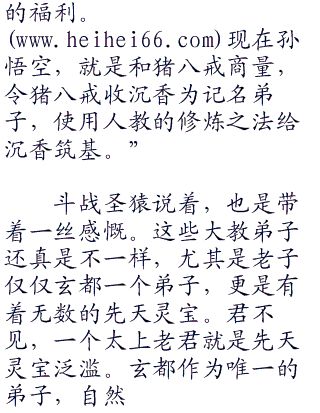 的福利。
(www.heihei66.com)现在孙
悟空，就是和猪八戒商量，
令猪八戒收沉香为记名弟
子，使用人教的修炼之法给
沉香筑基。”
斗战圣猿说着，也是带
着一丝感慨。这些大教弟子
还真是不一样，尤其是老子
仅仅玄都一个弟子，更是有
着无数的先天灵宝。君不
见，一个太上老君就是先天
灵宝泛滥。玄都作为唯一的
弟子，自然